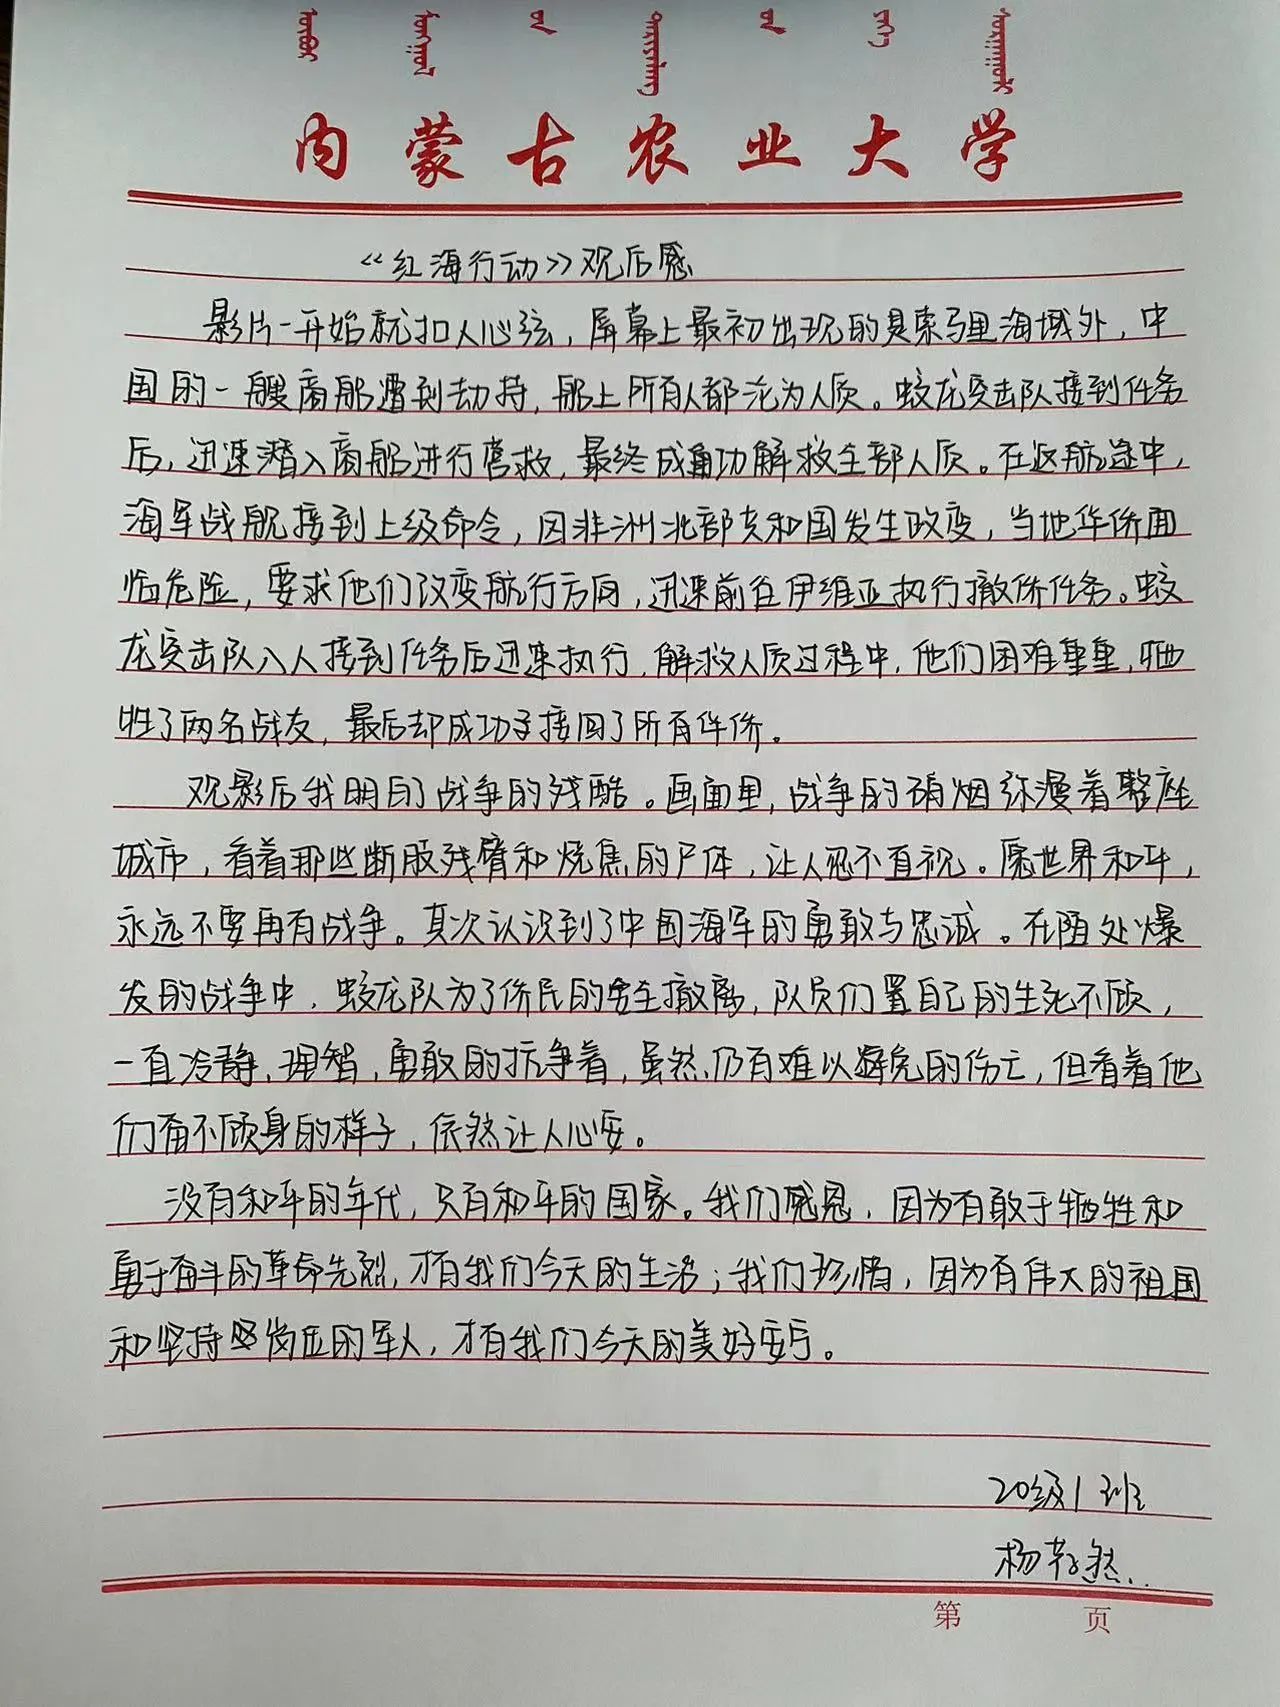 内蒙古农业大学
《红海行动》观后感
影片一开始就扣人心弦，屏幕上最初出现的是索马里海域外，中
国的一艘商船遭到劫持，船上所有人都沦为人质。蛟龙突击队接到任务
后，迅速潜入商船进行营救，最终成功解救全部人质。在返航途中，
海军战舰接到上级命令，因非洲北部共和国发生政变，当地华侨面
临危险，要求他们改变航行方向，迅速前往伊维亚执行撤侨任务。蛟
龙突击队八人接到任务后迅速执行，解救人质过程中，他们困难重重，牺
牲了两名战友，最后却成功接回了所有侨。
观影后我明白了战争的残酷。画面里，战争的硝烟弥漫着整座
城市，看着那些断肢残臂和烧焦的尸体，让人忍不直视。愿世界和平，
永远不要再有战争。其次认识到了中国海军的勇敢与忠诚。在随处爆
发的战争中，蛟龙队为了侨民的安全撤离，队员们置自己的生死不顾，
一直冷静，理智，勇敢的抗争着，虽然仍有难以避免的伤亡，但看着他
们奋不顾身的样子，依然让人心安。
没有和平的年代，只有和平的国家。我们感恩，因为有敢于牺牲和
勇于奋斗的革命先烈，才有我们今天的生活；我们珍惜，因为有伟大的祖国
和坚持岗位的军人，才有我们今天的美好安宁。
20级1班
杨 然
第 页